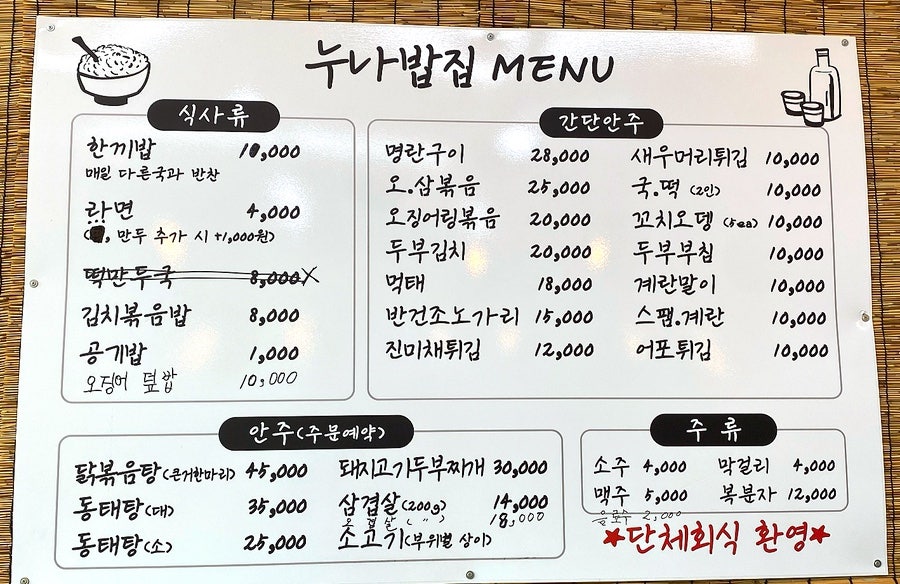 누나밥집 MENU
식사류
한끼밥 10,000
매일 다른국과 반찬
라면 4,000
( , 만두 추가 시 +1,000원)
떡만두국 8,000
김치볶음밥 8,000
공기밥 1,000
오징어 덮밥 10,000
간단안주
명란구이 28,000
오.삼볶음 25,000
오징어링볶음 20,000
두부김치 20,000
먹태 18,000
반건조노가리 15,000
진미채튀김 12,000
새우머리튀김 10,000
국.떡 (2인) 10,000
꼬치오뎅 (5ea) 10,000
두부부침 10,000
계란말이 10,000
스팸.계란 10,000
어포튀김 10,000
안주(주문예약)
닭볶음탕(큰거한마리) 45,000
동태탕(대) 35,000
동태탕(소) 25,000
돼지고기두부찌개 30,000
삼겹살(200g) 14,000
오겹살 ( " ) 18,000
소고기(부위별 상이)
주류
소주 4,000
맥주 5,000
음료수 2,000
막걸리 4,000
복분자 12,000
★단체회식 환영★